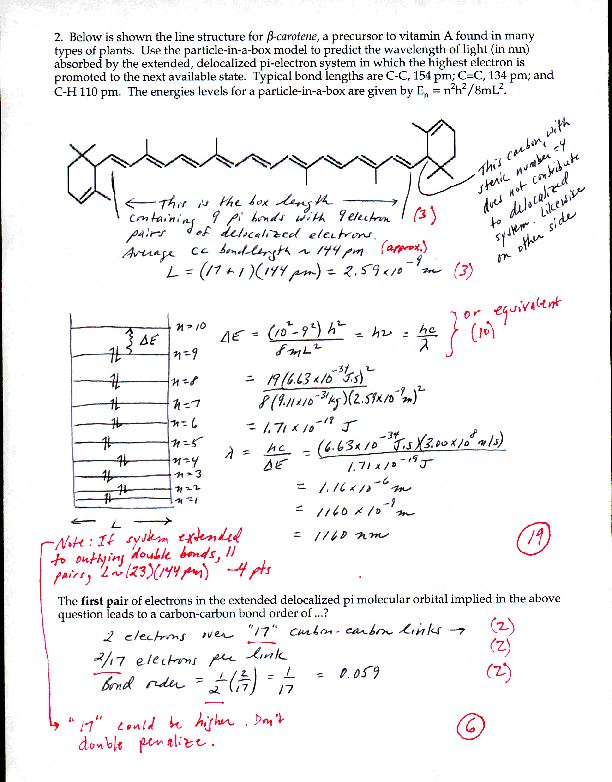 2. Below is shown the line structure for β-carotene, a precursor to vitamin A found in many
types of plants. Use the particle-in-a-box model to predict the wavelength of light (in nm)
absorbed by the extended, delocalized pi-electron system in which the highest electron is
promoted to the next available state. Typical bond lengths are C-C, 154 pm; C=C, 134 pm; and
C-H 110 pm. The energies levels for a particle-in-a-box are given by Eₙ = n²h²/8mL².
This carbon, with
steric number = 4
does not contribute
to delocalized
system. Likewise
on other side
← This is the box length →
containing 9 pi bonds with 9 electron (3)
pairs of delocalized electrons.
Average CC bond length ~ 144 pm (approx.)
L = (17+1)(144 pm) = 2.59x10⁻⁹ m (3)
n=10
ΔE
n=9
n=8
n=7
n=6
n=5
n=4
n=3
n=2
n=1
← L →
ΔE = (10²-9²)h² / 8mL² = hν = hc/λ } or equivalent (10)
= 19(6.63x10⁻³⁴ J.s)² / 8(9.11x10⁻³¹ kg)(2.59x10⁻⁹ m)²
= 1.71 x 10⁻¹⁹ J
λ = hc/ΔE = (6.63x10⁻³⁴ J.s)(3.00x10⁸ m/s) / 1.71x10⁻¹⁹ J
= 1.16x10⁻⁶ m
= 1160 x10⁻⁹ m
= 1160 nm
(19)
Note: If system extended
to outlying double bonds, 11
pairs, L~(23)(144 pm) -4 pts
The first pair of electrons in the extended delocalized pi molecular orbital implied in the above
question leads to a carbon-carbon bond order of ...?
2 electrons over "17" carbon-carbon links → (2)
2/17 electrons per link (2)
Bond order = 1/2 (2/17) = 1/17 = 0.059 (2)
"17" could be higher. Don't
double penalize.
(6)